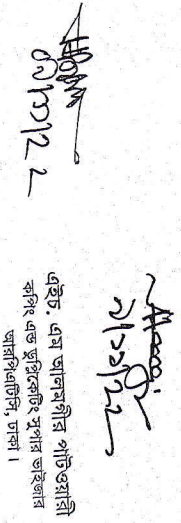 ৩/১১/২২
৩/১১/২২
এইচ. এম আলমগীর পাটওয়ারী
কপিং এন্ড ডুপ্লিকেটিং সুপার ভাইজার
আরপিএটিসি, ঢাকা।